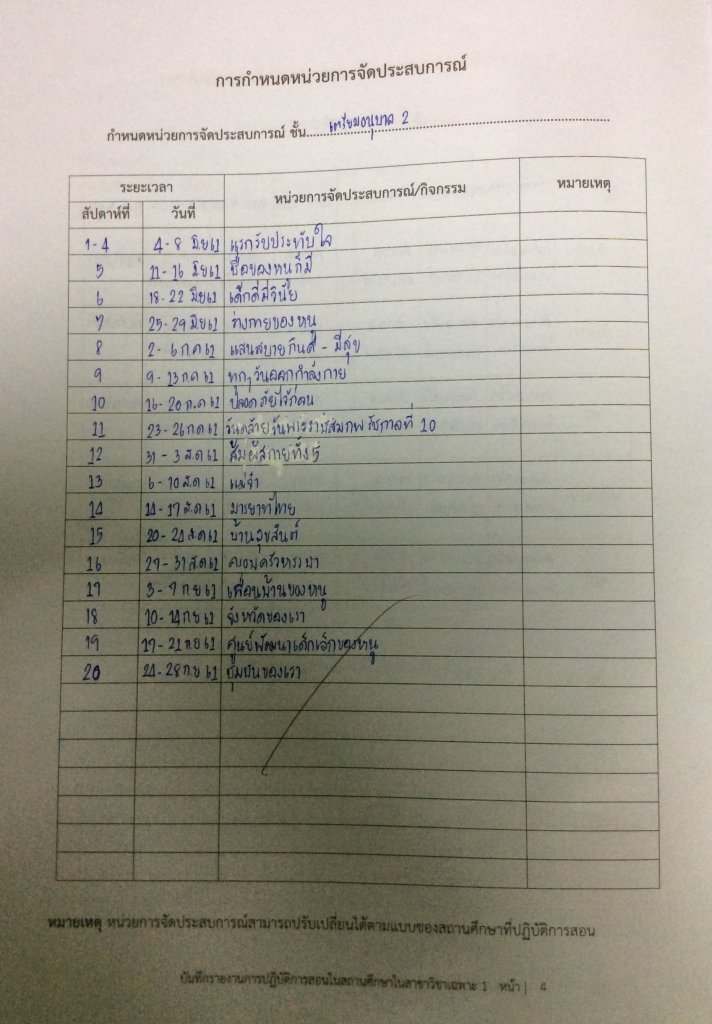 การกำหนดหน่วยการจัดประสบการณ์
กำหนดหน่วยการจัดประสบการณ์ ชั้น....เตรียมอนุบาล 2....
ระยะเวลา หน่วยการจัดประสบการณ์/กิจกรรม หมายเหตุ
สัปดาห์ที่ วันที่
1-4 4-8 มิย 61 แรกรับประทับใจ
5 11-15 มิย 61 ชื่อของหนูก็มี
6 18-22 มิย 61 เด็กดีมีวินัย
7 25-29 มิย 61 ร่างกายของหนู
8 2-6 กค 61 แสนสบายกินดี - มีสุข
9 9-13 กค 61 ทุกๆวันออกกำลังกาย
10 16-20 กค 61 ปลอดภัยไว้ก่อน
11 23-26 กค 61 วันคล้ายวันพระราชสมภพรัชกาลที่ 10
12 31-3 สค 61 สัมผัสกายทั้ง 5
13 6-10 สค 61 แม่จ๋า
14 14-17 สค 61 มารยาทไทย
15 20-24 สค 61 บ้านสุขสันต์
16 27-31 สค 61 ครอบครัวหรรษา
17 3-7 กย 61 เพื่อนบ้านของหนู
18 10-14 กย 61 จังหวัดของเรา
19 17-21 กย 61 ศูนย์พัฒนาเด็กเล็กของหนู
20 24-28 กย 61 ชุมชนของเรา
หมายเหตุ หน่วยการจัดประสบการณ์สามารถปรับเปลี่ยนได้ตามแบบของสถานศึกษาที่ปฏิบัติการสอน
บันทึกรายงานการปฏิบัติการสอนในสถานศึกษาในสาขาวิชาเฉพาะ 1 หน้า | 4